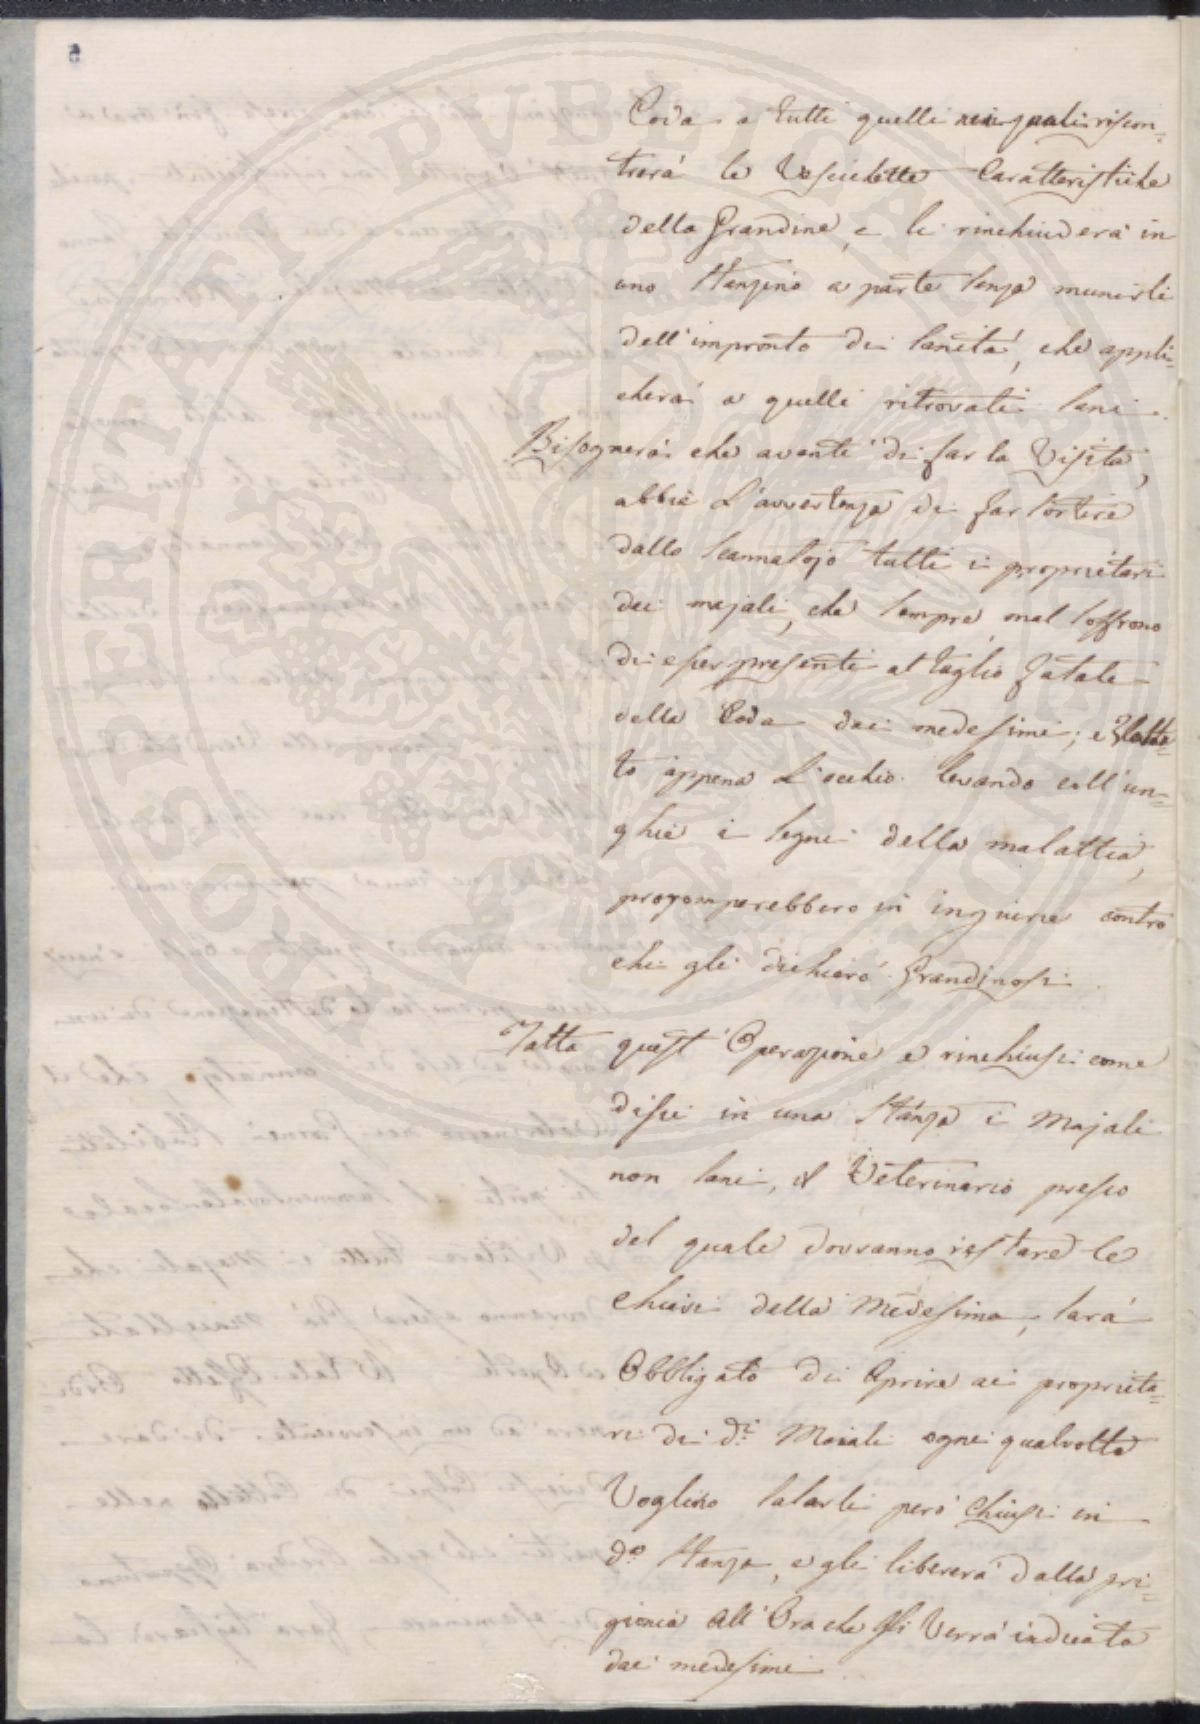 Coda a tutti quelli nei quali riscon=
trerà le Vescichette Caratteristiche
della Grandine, e li rinchiuderà in
uno Stanzino a parte senza munirli
dell'impronto di sanità, che appli=
cherà a quelli ritrovati sani.
Bisognerà che avanti di far la Visita,
abbia l'avvertenza di far sortire
dallo scannatojo tutti i proprietari
dei majali, che sempre mal soffrono
di esser presenti al taglio fatale
della Coda dei medesimi; e
to appena l'occhio levando coll'un=
ghie i segni della malattia,
prorromperebbero in ingiurie contro
chi gli dichiarò Grandinosi.
Fatta quest'Operazione e rinchiusi come
dissi in una Stanza i Majali
non sani, il Veterinario presso
del quale dovranno restare le
Chiavi della Medesima, sarà
Obbligato di Aprire ai proprieta=
ri di di. Maiali ogni qualvolta
Voglino salarli però Chiusi in
da. Stanza, e gli libererà dalla pri=
gionia all'Ora che Gli Verrà indicata
dai medesimi.
PROSPERITATI PUBLICAE AUGENDAE